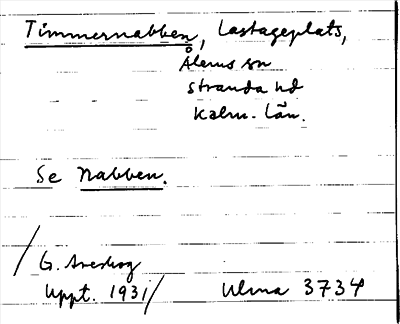 Timmernabben, Lastageplats,
Ålems sn
Stranda hd
Kalm. län.
Se Nabben.
/G. Areskog
Uppt. 1931/ Ulma 3734